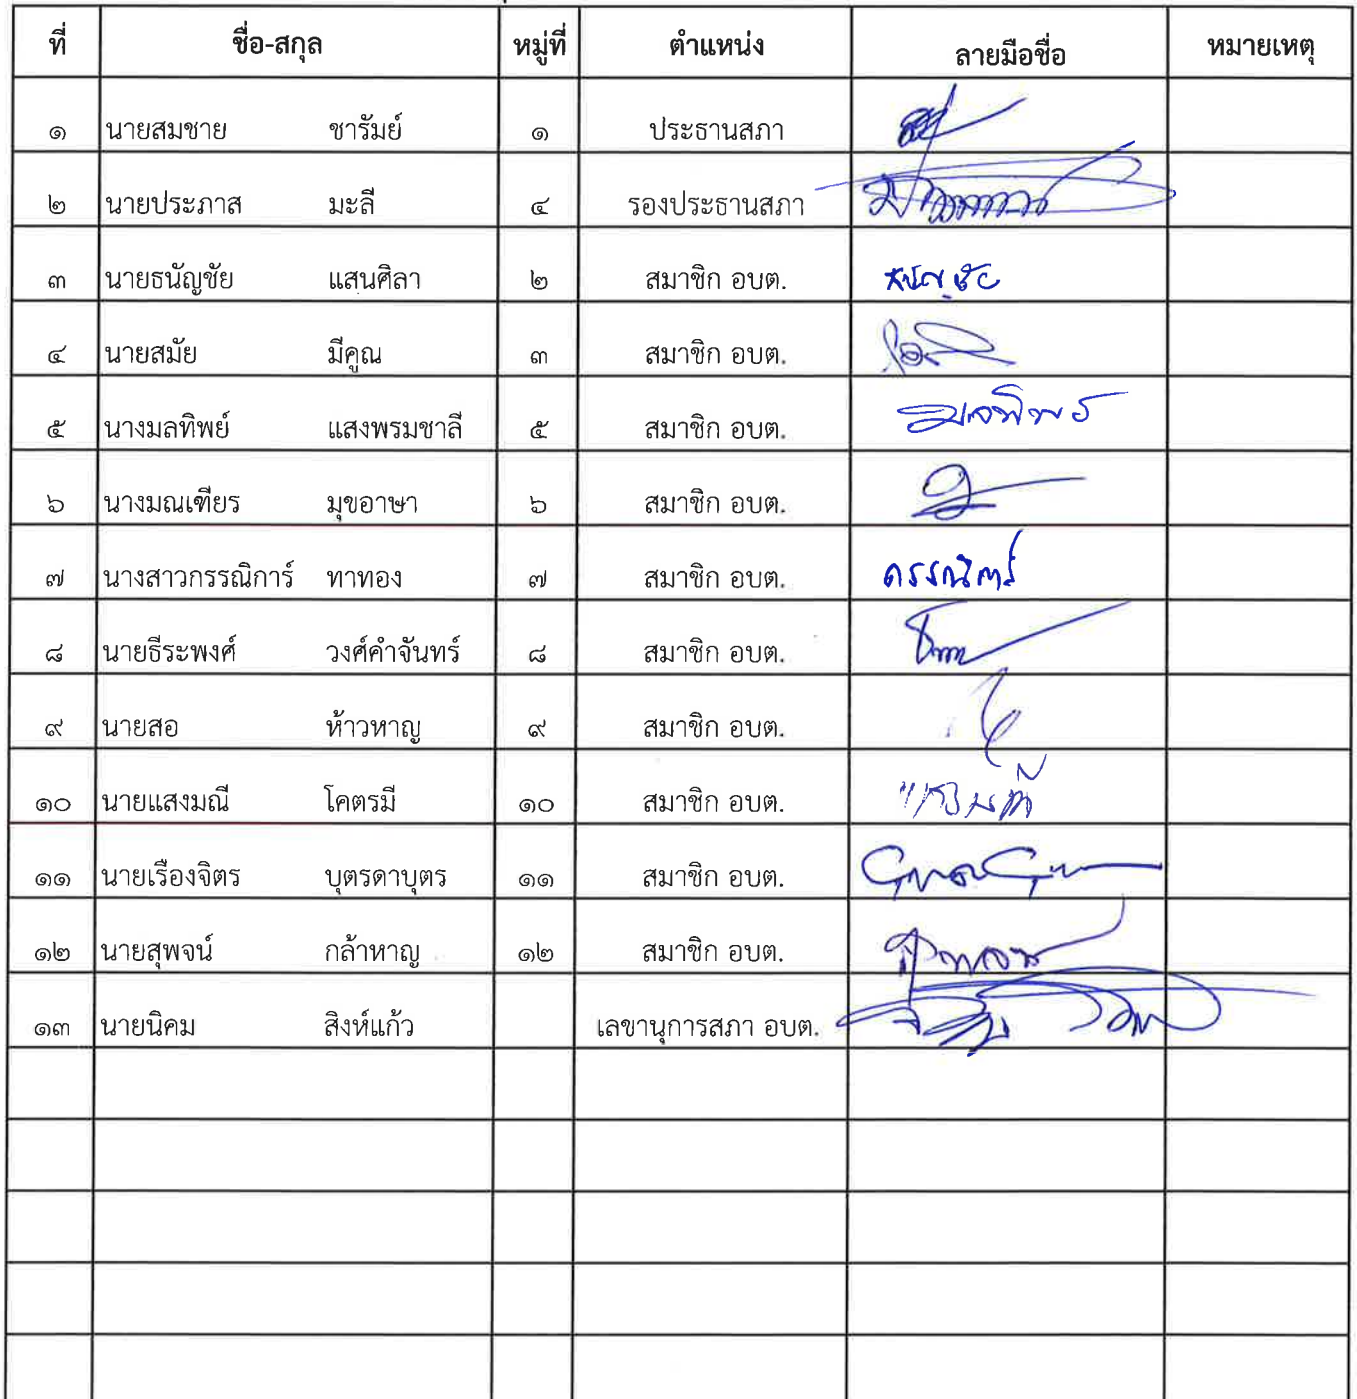 ที่ ชื่อ-สกุล หมู่ที่ ตำแหน่ง ลายมือชื่อ หมายเหตุ
๑ นายสมชาย ชารัมย์ ๑ ประธานสภา
๒ นายประภาส มะลี ๔ รองประธานสภา
๓ นายธนัญชัย แสนศิลา ๒ สมาชิก อบต. ธนัญชัย
๔ นายสมัย มีคูณ ๓ สมาชิก อบต.
๕ นางมลทิพย์ แสงพรมชาลี ๕ สมาชิก อบต. มลทิพย์
๖ นางมณเฑียร มุขอาษา ๖ สมาชิก อบต.
๗ นางสาวกรรณิการ์ ทาทอง ๗ สมาชิก อบต. กรรณิการ์
๘ นายธีระพงศ์ วงศ์คำจันทร์ ๘ สมาชิก อบต.
๙ นายสอ ห้าวหาญ ๙ สมาชิก อบต.
๑๐ นายแสงมณี โคตรมี ๑๐ สมาชิก อบต.
๑๑ นายเรืองจิตร บุตรดาบุตร ๑๑ สมาชิก อบต.
๑๒ นายสุพจน์ กล้าหาญ ๑๒ สมาชิก อบต.
๑๓ นายนิคม สิงห์แก้ว เลขานุการสภา อบต.